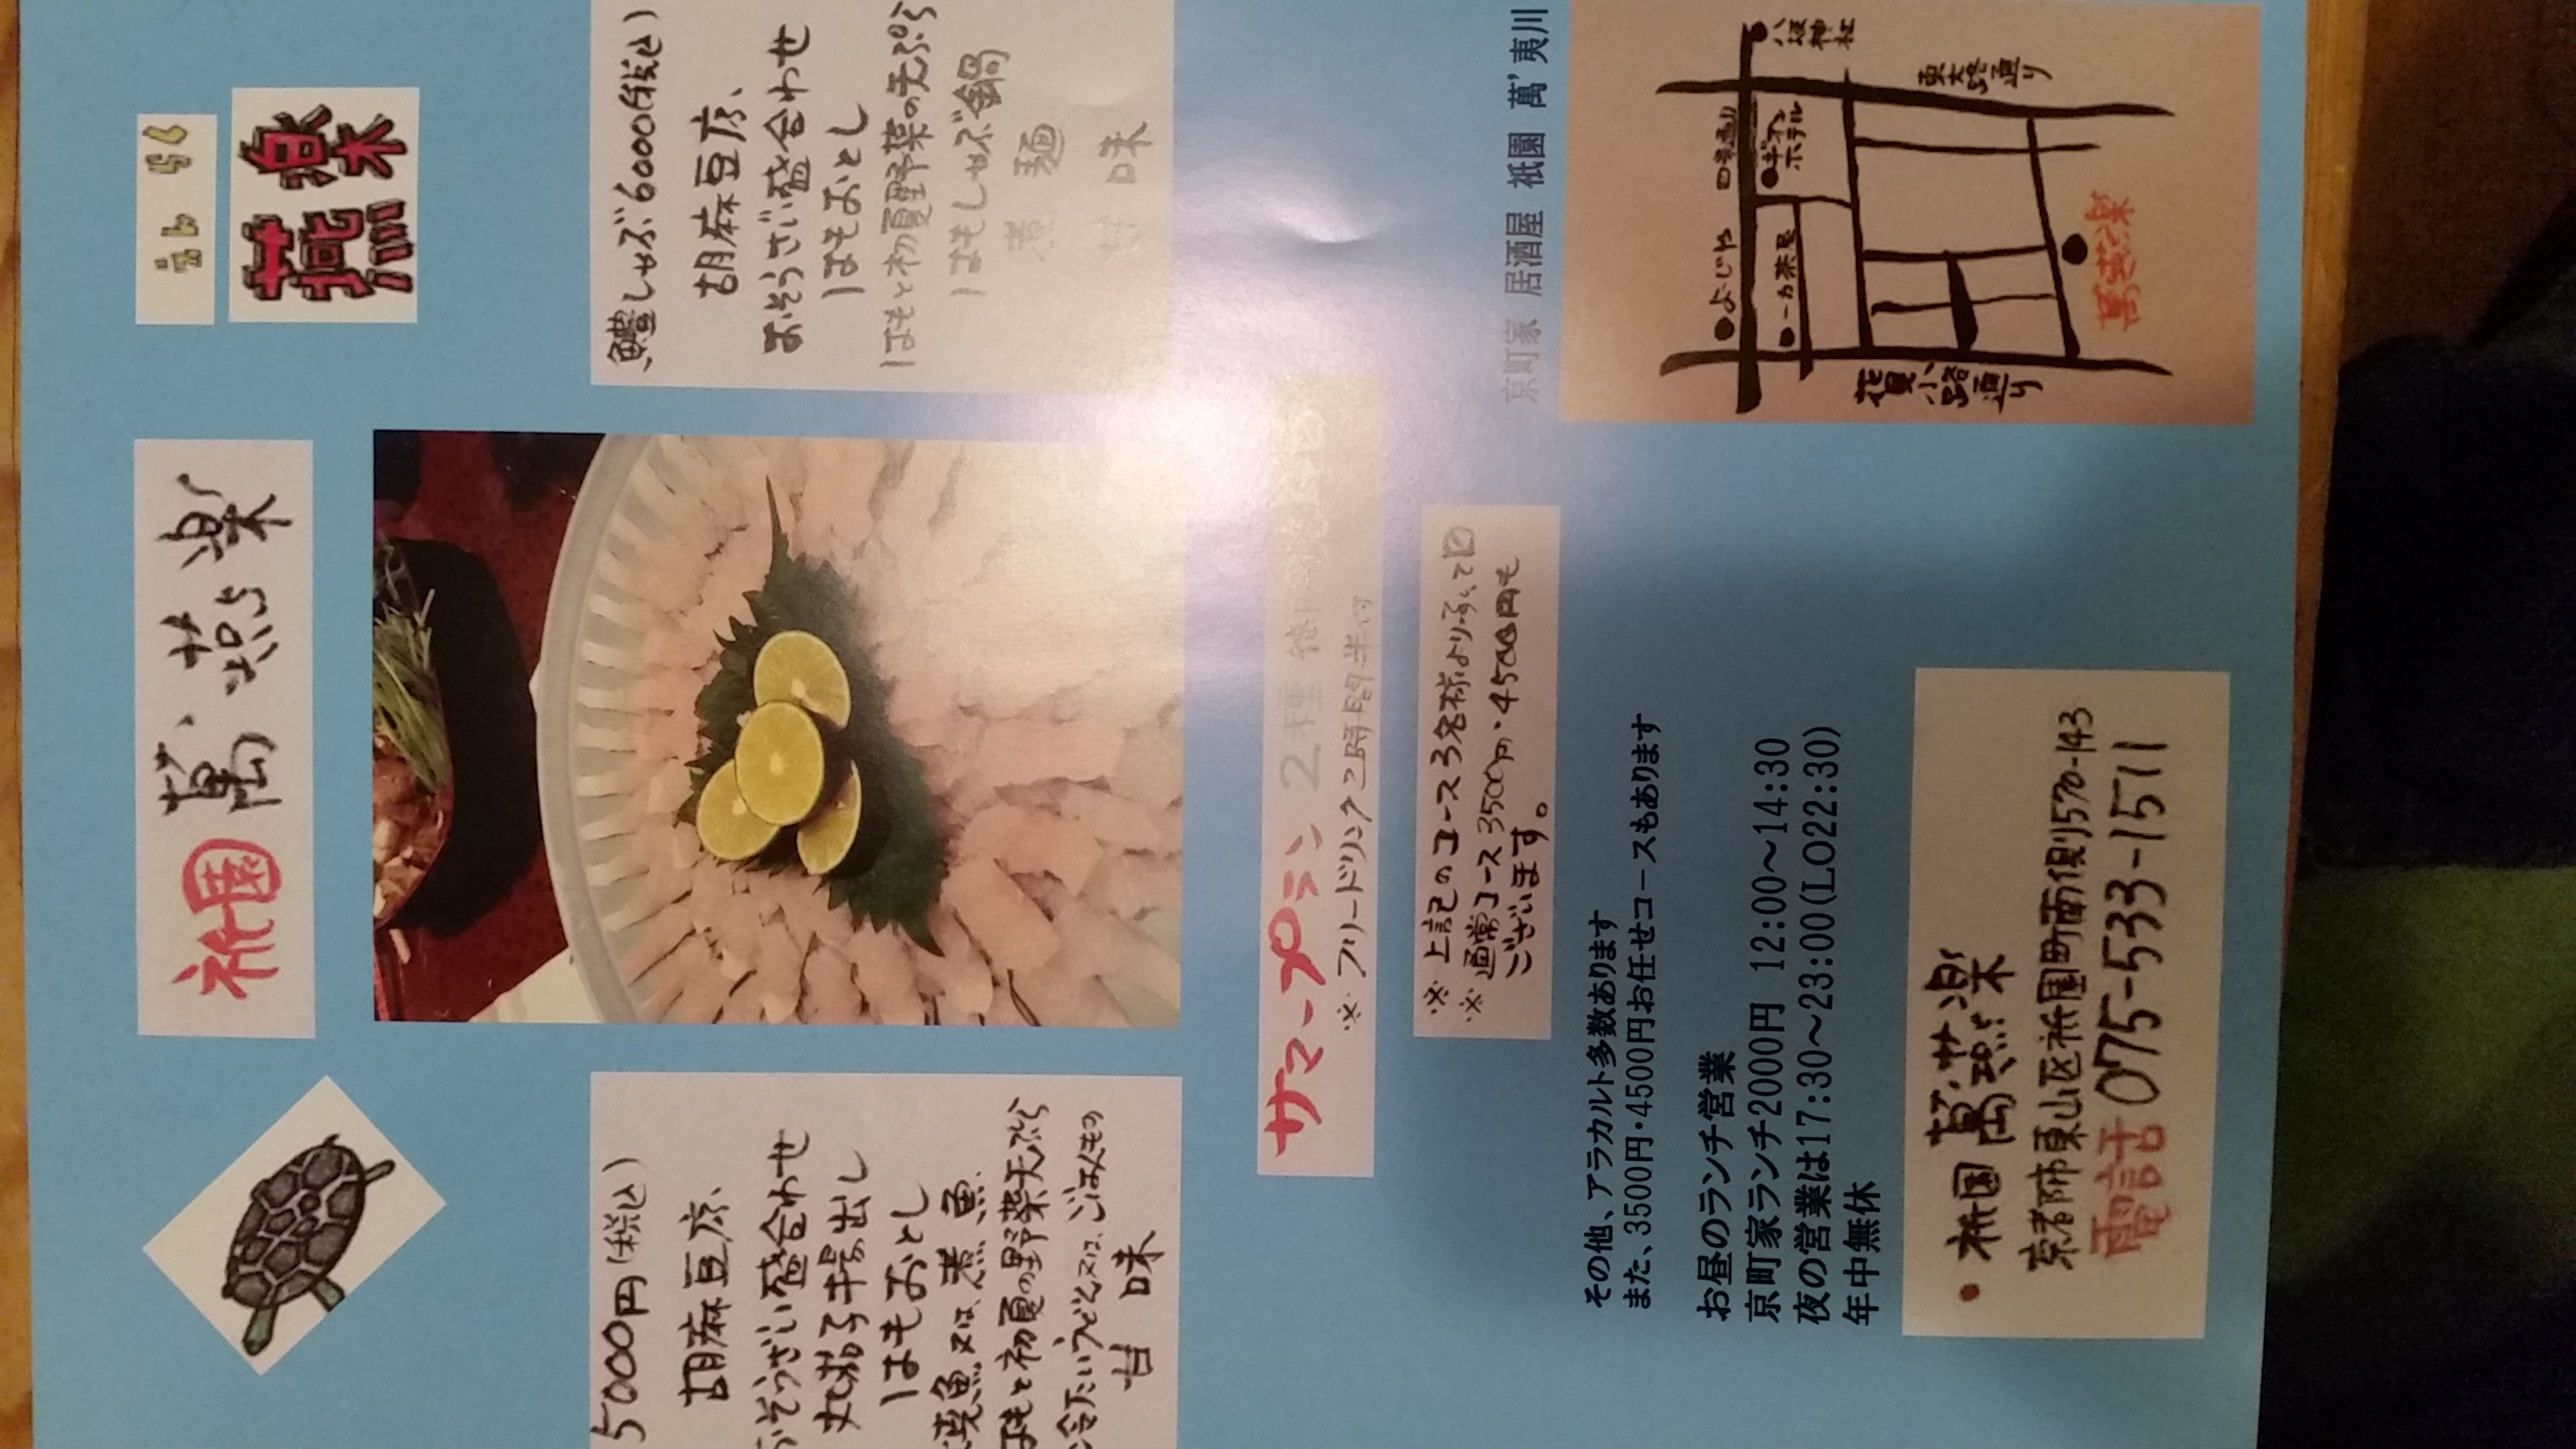 祇園 萬燕楽
燕楽
5000円(税込)
胡麻豆腐、
おそうざい盛合わせ
丸茄子早出し
はもおとし
焼魚又は、煮魚
はもと初夏の野菜天ぷら
冷たいうどん又は、ごはんもの
甘味
鱧しゃぶ6000(税込)
胡麻豆腐、
おそうざい盛合わせ
はもおとし
はもと初夏野菜の天ぷら
はもしゃぶ鍋
煮麺
甘味
サマープラン 2種
※フリードリンク2時間半付
※上記のコース3名様より承って
※通常コース3500円・4500円も
ございます。
その他、アラカルト多数あります
また、3500円・4500円お任せコースもあります
お昼のランチ営業
京町家ランチ2000円 12:00～14:30
夜の営業は17:30～23:00(LO22:30)
年中無休
・祇園 萬燕楽
京都市東山区祇園町南側570-143
電話 075-533-1511
京町家 居酒屋 祇園 萬 夷川
八坂神社
東大路通り
四条通り
ギオンホテル
よーじや
一力茶屋
花見小路通り
萬燕楽